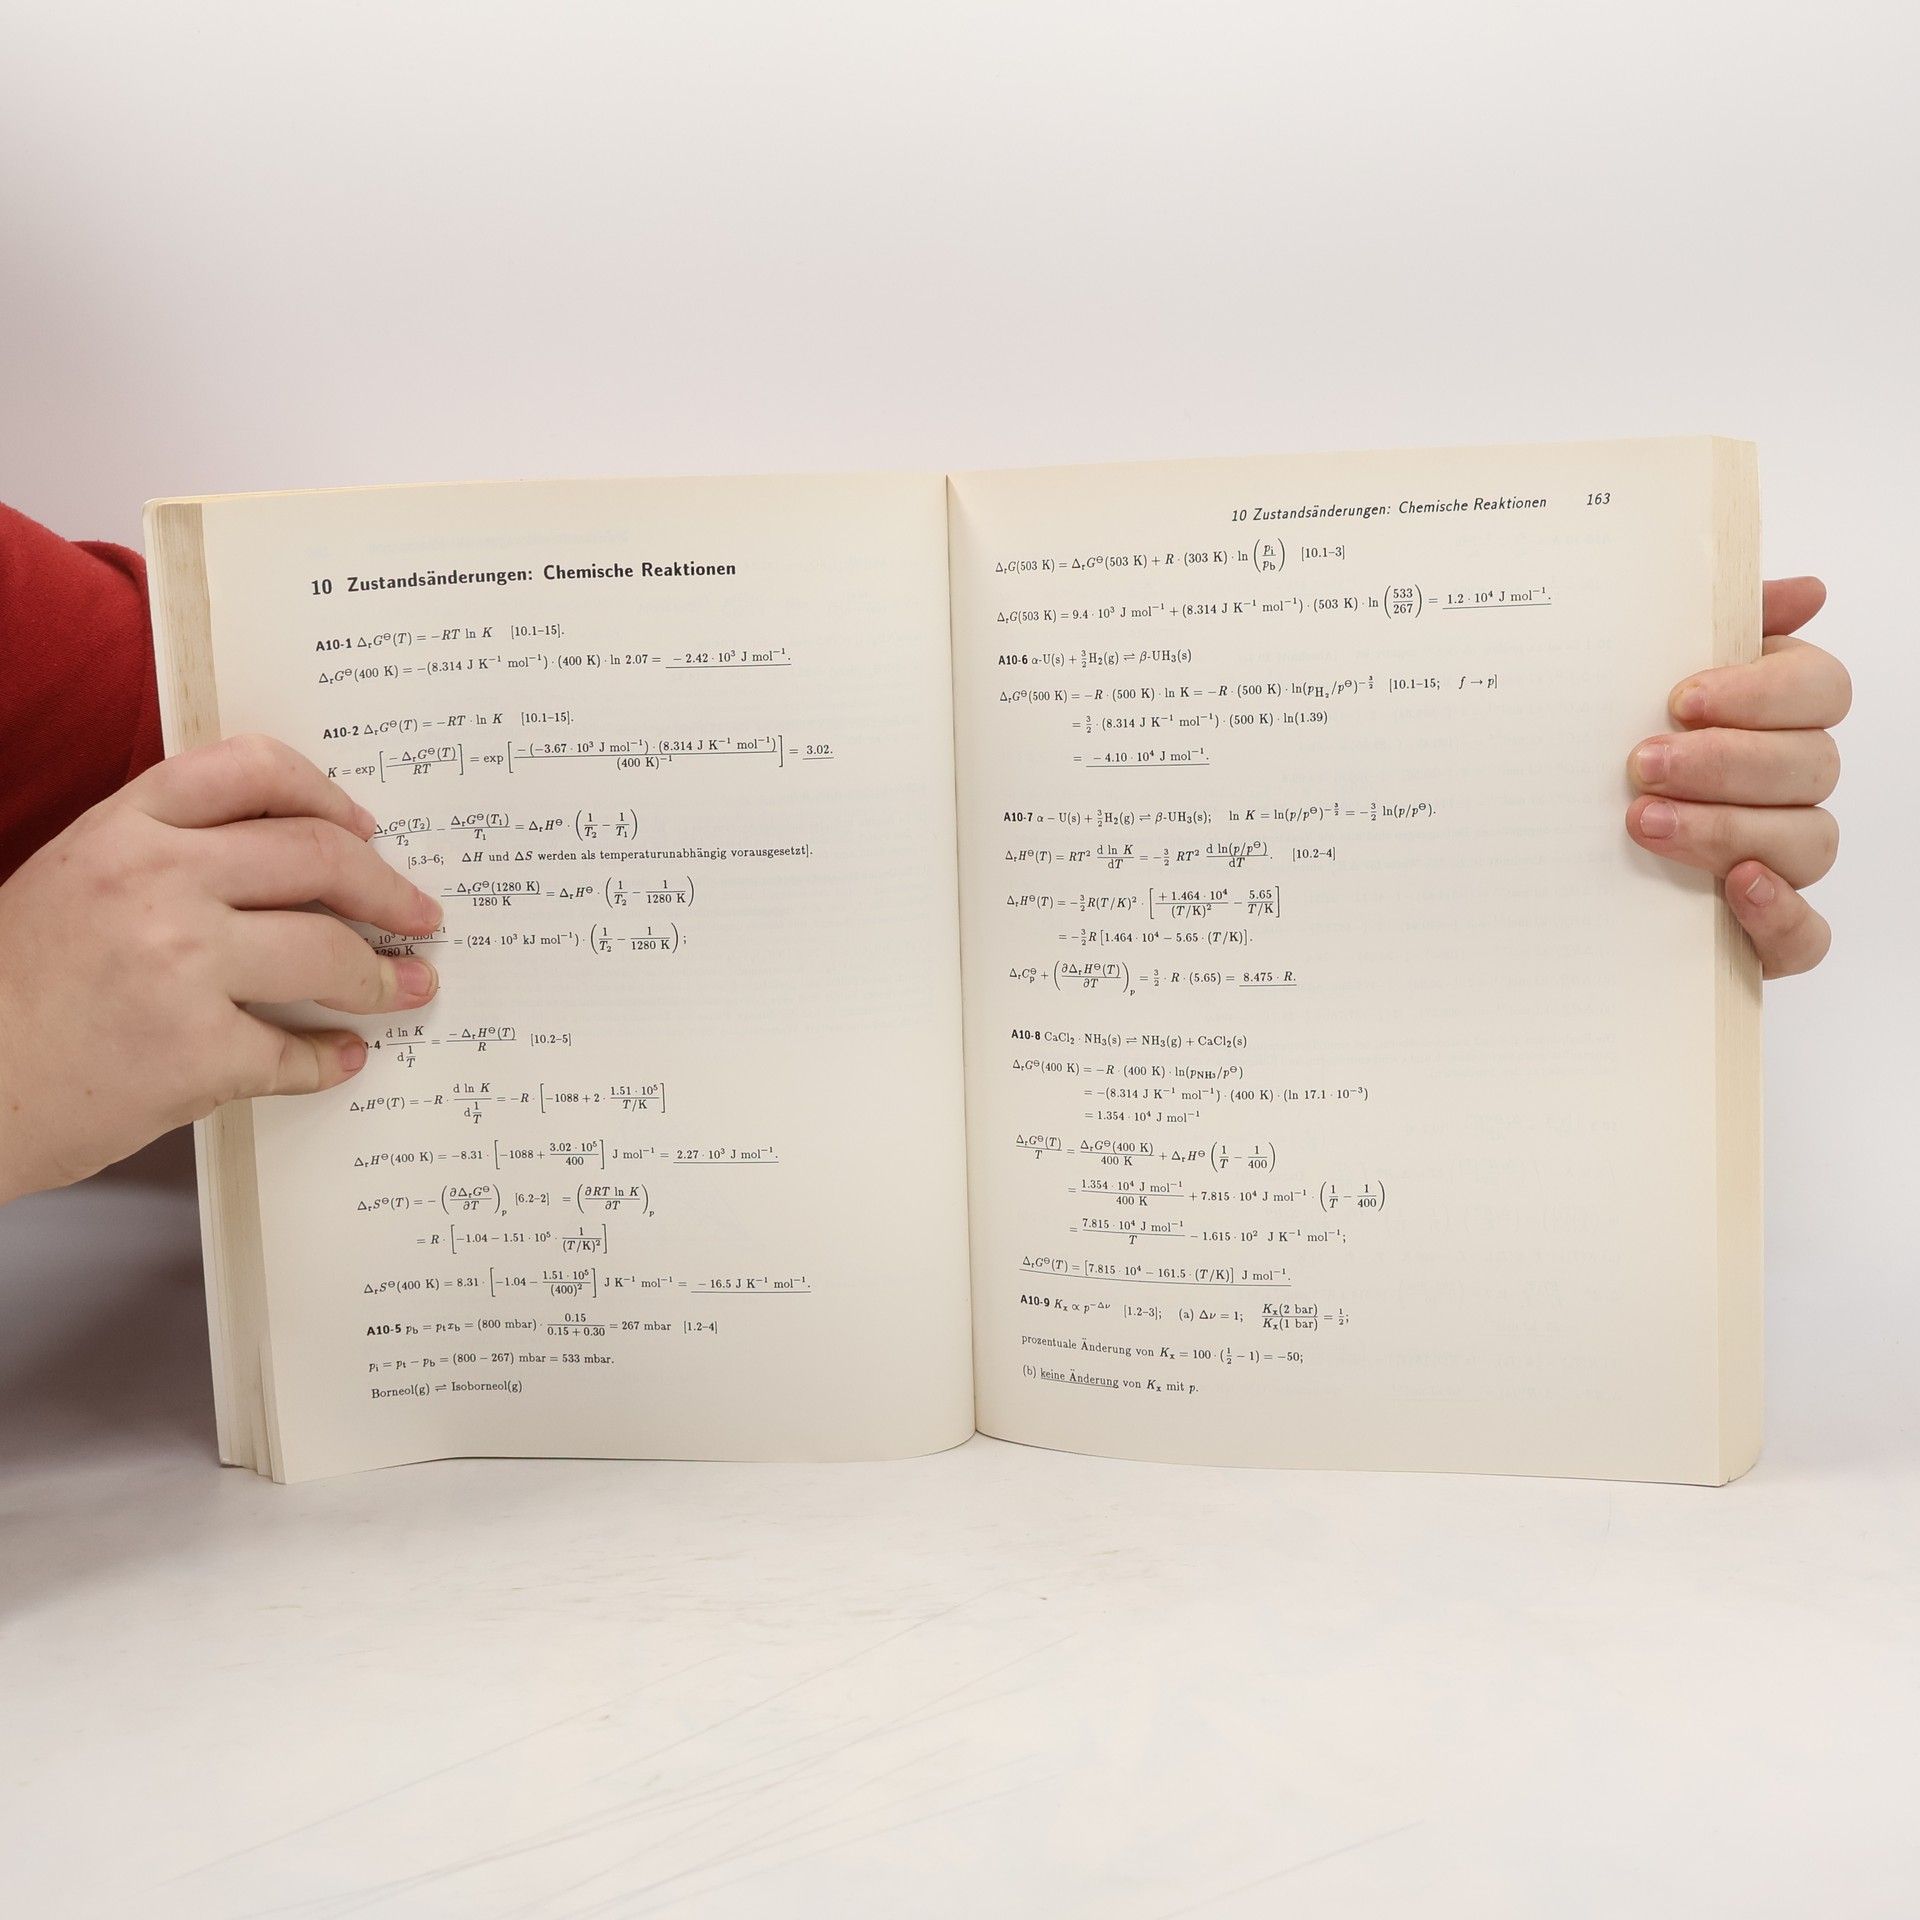 10 Zustandsänderungen: Chemische Reaktionen
A10-1 ΔᵣG⊖(T) = −RT ln K [10.1–15].
ΔᵣG⊖(400 K) = −(8.314 J K⁻¹ mol⁻¹) · (400 K) · ln 2.07 = − 2.42 · 10³ J mol⁻¹.
A10-2 ΔᵣG⊖(T) = −RT · ln K [10.1–15].
K = exp [− ΔᵣG⊖(T) / RT] = exp [− (−3.67 · 10³ J mol⁻¹) · (8.314 J K⁻¹ mol⁻¹) / (400 K)⁻¹] = 3.02.
ΔᵣG⊖(T₂)/T₂ − ΔᵣG⊖(T₁)/T₁ = ΔᵣH⊖ · (1/T₂ − 1/T₁)
[5.3–6; ΔH und ΔS werden als temperaturunabhängig vorausgesetzt].
− ΔᵣG⊖(1280 K) / 1280 K = ΔᵣH⊖ · (1/T₂ − 1/1280 K)
· 10³ J mol⁻¹ / 1280 K = (224 · 10³ kJ mol⁻¹) · (1/T₂ − 1/1280 K) ;
-4 d ln K / d 1/T = − ΔᵣH⊖(T) / R [10.2–5]
ΔᵣH⊖(T) = −R · d ln K / d 1/T = −R · [−1088 + 2 · 1.51 · 10⁵ / T/K]
ΔᵣH⊖(400 K) = −8.31 · [−1088 + 3.02 · 10⁵ / 400] J mol⁻¹ = 2.27 · 10³ J mol⁻¹.
ΔᵣS⊖(T) = − (∂ΔᵣG⊖/∂T)ₚ [6.2–2] = (∂RT ln K/∂T)ₚ
= R · [−1.04 − 1.51 · 10⁵ · 1/(T/K)²]
ΔᵣS⊖(400 K) = 8.31 · [−1.04 − 1.51 · 10⁵ / (400)²] J K⁻¹ mol⁻¹ = − 16.5 J K⁻¹ mol⁻¹.
A10-5 p_b = p_t x_b = (800 mbar) · 0.15 / 0.15 + 0.30 = 267 mbar [1.2–4]
p_i = p_t − p_b = (800 − 267) mbar = 533 mbar.
Borneol(g) ⇌ Isoborneol(g)
10 Zustandsänderungen: Chemische Reaktionen 163
ΔᵣG(503 K) = ΔᵣG⊖(503 K) + R · (303 K) · ln (p_i/p_b) [10.1–3]
ΔᵣG(503 K) = 9.4 · 10³ J mol⁻¹ + (8.314 J K⁻¹ mol⁻¹) · (503 K) · ln (533/267) = 1.2 · 10⁴ J mol⁻¹.
A10-6 α-U(s) + 3/2 H₂(g) ⇌ β-UH₃(s)
ΔᵣG⊖(500 K) = −R · (500 K) · ln K = −R · (500 K) · ln(p_H₂/p⊖)^−3/2 [10.1–15; f → p]
= 3/2 · (8.314 J K⁻¹ mol⁻¹) · (500 K) · ln(1.39)
= − 4.10 · 10⁴ J mol⁻¹.
A10-7 α − U(s) + 3/2 H₂(g) ⇌ β-UH₃(s); ln K = ln(p/p⊖)^−3/2 = −3/2 ln(p/p⊖).
ΔᵣH⊖(T) = RT² d ln K / dT = −3/2 RT² d ln(p/p⊖) / dT. [10.2–4]
ΔᵣH⊖(T) = −3/2 R(T/K)² · [+ 1.464 · 10⁴ / (T/K)² − 5.65 / T/K]
= −3/2 R [1.464 · 10⁴ − 5.65 · (T/K)].
ΔᵣC⊖ₚ + (∂ΔᵣH⊖(T)/∂T)ₚ = 3/2 · R · (5.65) = 8.475 · R.
A10-8 CaCl₂ · NH₃(s) ⇌ NH₃(g) + CaCl₂(s)
ΔᵣG⊖(400 K) = −R · (400 K) · ln(p_NH₃/p⊖)
= −(8.314 J K⁻¹ mol⁻¹) · (400 K) · (ln 17.1 · 10⁻³)
= 1.354 · 10⁴ J mol⁻¹
ΔᵣG⊖(T)/T = ΔᵣG⊖(400 K) / 400 K + ΔᵣH⊖ (1/T − 1/400)
= 1.354 · 10⁴ J mol⁻¹ / 400 K + 7.815 · 10⁴ J mol⁻¹ · (1/T − 1/400)
= 7.815 · 10⁴ J mol⁻¹ / T − 1.615 · 10² J K⁻¹ mol⁻¹;
ΔᵣG⊖(T) = [7.815 · 10⁴ − 161.5 · (T/K)] J mol⁻¹.
A10-9 Kₓ ∝ p^−Δν [1.2–3]; (a) Δν = 1; Kₓ(2 bar) / Kₓ(1 bar) = 1/2;
prozentuale Änderung von Kₓ = 100 · (1/2 − 1) = −50;
(b) keine Änderung von Kₓ mit p.